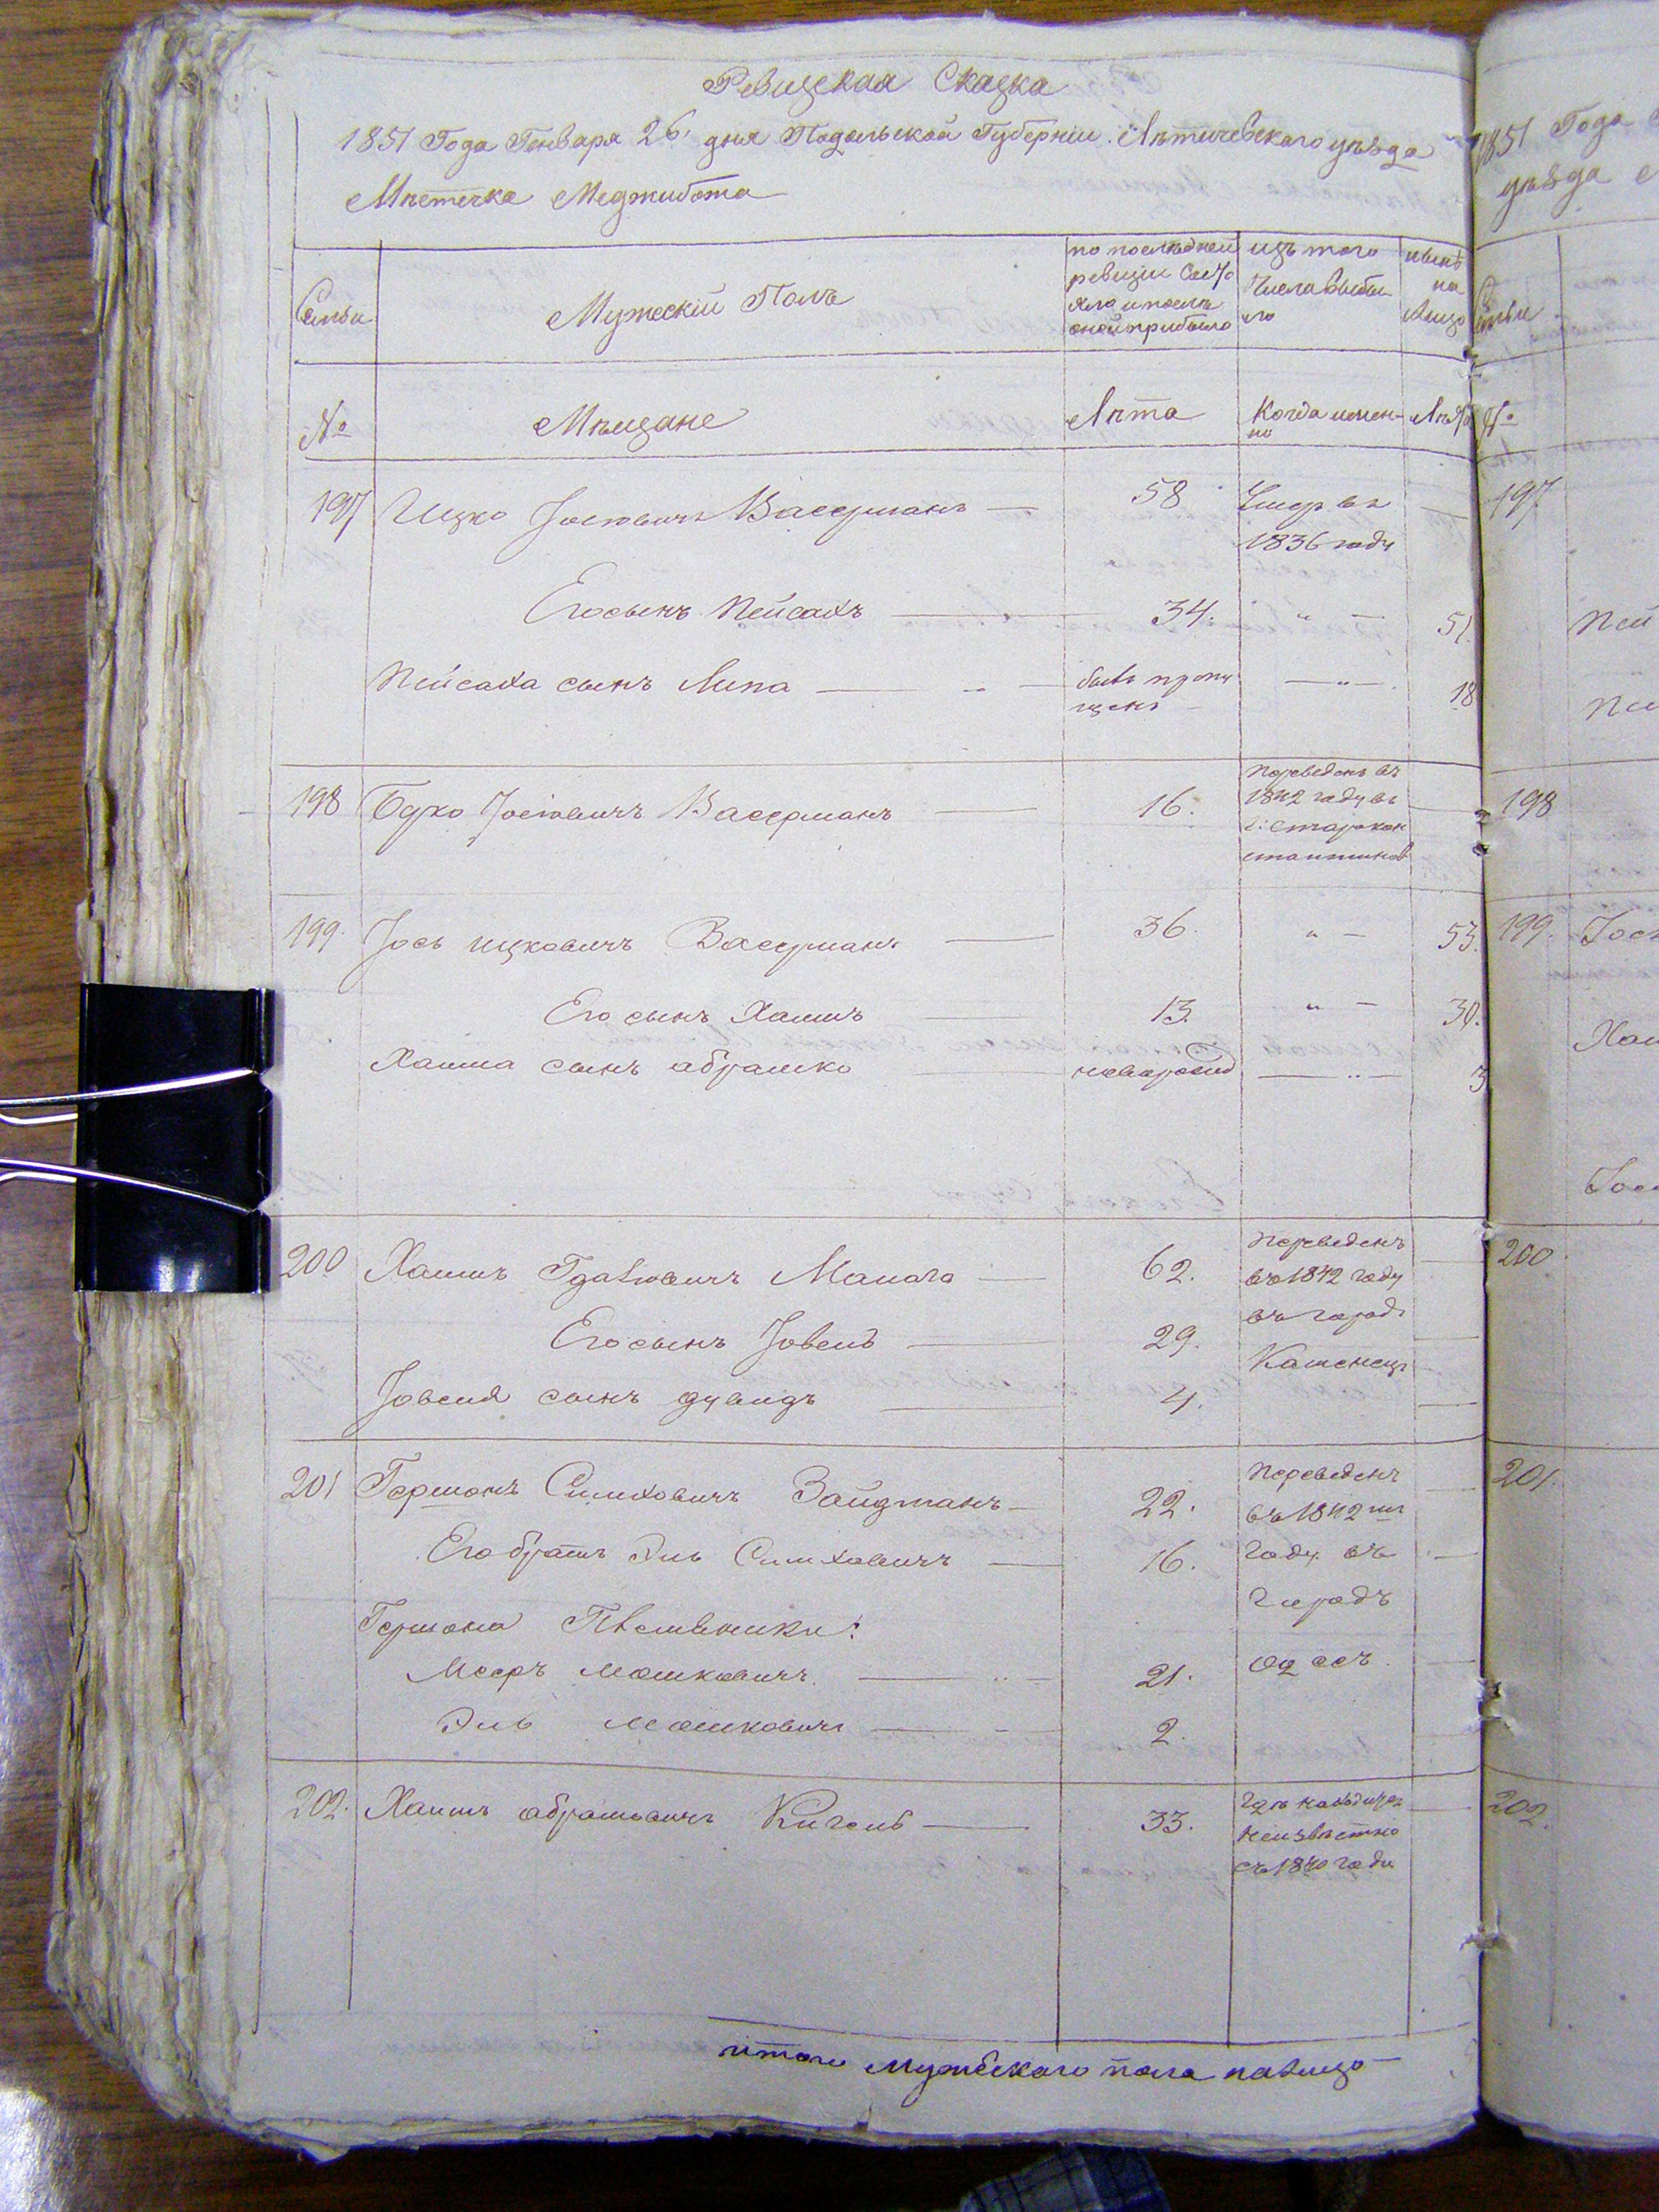 Ревизская Сказка
1851 Года Генваря 26. дня Подольской Губерніи. Лѣтичевскаго уѣзда
Мѣстечка Меджибожа
Семьи
Мужескій Полъ
по послѣдней
ревизіи состо
яло и послѣ
оной прибыло
изъ того
числа выбы
ло
нынѣ
на
лицо
№
Мѣщане
Лѣта
Когда имен-
но
Лѣта
197 Ицко Іосіовичъ Васерманъ 58 Умеръ въ
1836 году
Его сынъ Пейсахъ 34. „ 51.
Пейсаха сынъ Липа былъ пропу
щенъ „ 18
198 Будко Іосіовичъ Васерманъ 16. Переведенъ въ
1842 году въ
г: Старокон
стантиновъ
199. Іось Ицковичъ Васерманъ 36. „ 53.
Его сынъ Хаимъ 13. „ 30.
Хаима сынъ Абрамко новорожд „ 3
200 Хаимъ Гдалювичъ Манага 62. Переведенъ
въ 1842 году
въ городъ
Его сынъ Іовель 29. Каменецъ
Іовеля сынъ Дувидъ 4.
201 Гершонъ Симховичъ Зайдманъ 22. Переведенъ
въ 1842 мъ
Его братъ Эль Симховичъ 16. году въ
Гершона Племяники: Городъ
Мееръ Мошковичъ 21. Одессъ
Эль Мошковичъ 2.
202. Хаимъ Абрамовичъ Кигель 33. Гдѣ находится
неизвѣстно
съ 1840 года
итого Мужескаго пола налицо
1851 Года
уѣзда
Семьи
№
197.
Пей
Пей
198
199. Іось
Хаи
200
201.
202.